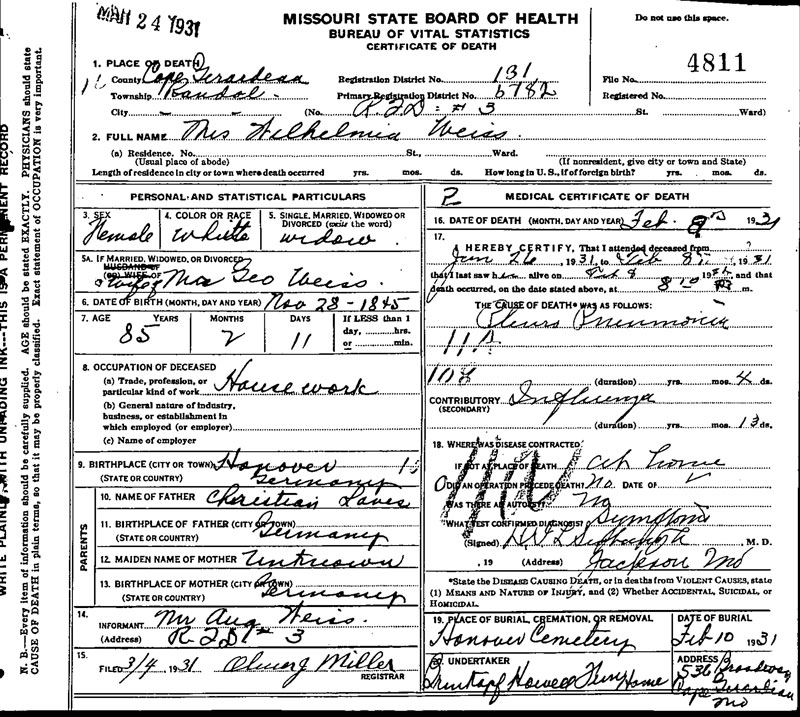 MAR 24 1931
MISSOURI STATE BOARD OF HEALTH
BUREAU OF VITAL STATISTICS
CERTIFICATE OF DEATH
Do not use this space.
4811
1. PLACE OF DEATH
County Cape Girardeau
Registration District No. 131
File No.
Township Randol
Primary Registration District No. 6782
Registered No.
City (No. R F D # 3 St. Ward)
2. FULL NAME Mrs Wilhelmia Weiss
(a) Residence. No. St., Ward.
(Usual place of abode) (If nonresident, give city or town and State)
Length of residence in city or town where death occurred yrs. mos. ds. How long in U. S., if of foreign birth? yrs. mos. ds.
PERSONAL AND STATISTICAL PARTICULARS
3. SEX
Female
4. COLOR OR RACE
White
5. SINGLE, MARRIED, WIDOWED OR DIVORCED (write the word)
widow
5A. IF MARRIED, WIDOWED, OR DIVORCED
HUSBAND OF
(OR) WIFE OF
Geo Weiss
6. DATE OF BIRTH (MONTH, DAY AND YEAR) Nov 28 - 1845
7. AGE YEARS MONTHS DAYS If LESS than 1
85 2 11
day, hrs.
or min.
8. OCCUPATION OF DECEASED
(a) Trade, profession, or
particular kind of work House work
(b) General nature of industry,
business, or establishment in
which employed (or employer)
(c) Name of employer
9. BIRTHPLACE (CITY OR TOWN) Hanover
(STATE OR COUNTRY) Germany
PARENTS
10. NAME OF FATHER Christian Laves
11. BIRTHPLACE OF FATHER (CITY OR TOWN)
(STATE OR COUNTRY) Germany
12. MAIDEN NAME OF MOTHER Unknown
13. BIRTHPLACE OF MOTHER (CITY OR TOWN)
(STATE OR COUNTRY) Germany
14.
INFORMANT Mr Aug Weiss
(Address) R F D # 3
15.
FILED 3/4 1931 Miller
REGISTRAR
2 MEDICAL CERTIFICATE OF DEATH
16. DATE OF DEATH (MONTH, DAY AND YEAR) Feb. 1931
17.
I HEREBY CERTIFY, That I attended deceased from
Jan 26, 1931, to Feb 8, 1931
that I last saw her alive on Feb 8, 1931, and that
death occurred, on the date stated above, at 8 10 m.
THE CAUSE OF DEATH* WAS AS FOLLOWS:
Pleuro Pneumonia
11A
(duration) yrs. mos. 4 ds.
CONTRIBUTORY Influenza
(SECONDARY)
(duration) yrs. mos. 13 ds.
18. WHERE WAS DISEASE CONTRACTED
IF NOT AT PLACE OF DEATH At home
DID AN OPERATION PRECEDE DEATH? No DATE OF
WAS THERE AN AUTOPSY? No
WHAT TEST CONFIRMED DIAGNOSIS? Symptoms
(Signed) M. D.
, 19 (Address) Jackson Mo
*State the DISEASE CAUSING DEATH, or in deaths from VIOLENT CAUSES, state
(1) MEANS AND NATURE OF INJURY, and (2) Whether ACCIDENTAL, SUICIDAL, or
HOMICIDAL.
19. PLACE OF BURIAL, CREMATION, OR REMOVAL
Hanover Cemetery
DATE OF BURIAL
Feb 10 1931
20. UNDERTAKER
Brinkopf Howell Fun Home
ADDRESS
536 Broadway
Cape Girardeau
Mo
N. B.—Every item of information should be carefully supplied. AGE should be stated EXACTLY. PHYSICIANS should state
CAUSE OF DEATH in plain terms, so that it may be properly classified. Exact statement of OCCUPATION is very important.
WRITE PLAINLY, WITH UNFADING INK---THIS IS A PERMANENT RECORD